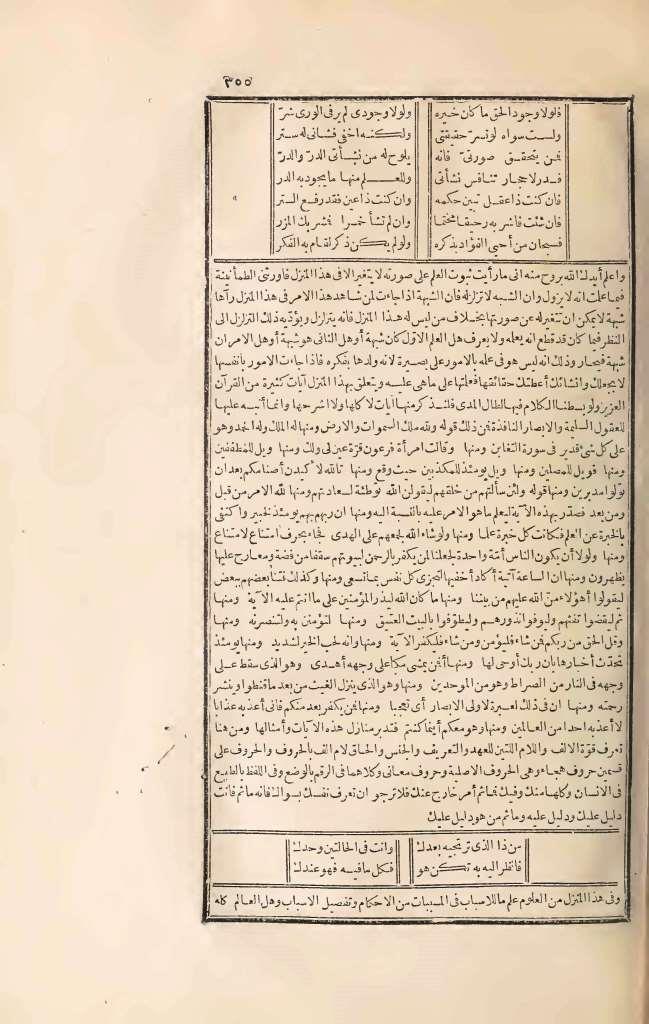 ٣٥٥
فلولا وجود الحق ما كان خيره ولولا وجودي لم ير في الورى شر
ولست سواه لو تسر حقيقتي ولكنه اخفى فشأني له ستر
فمن يتحقق صورتي فانه يلوح له من نشأتي الدر والدر
فدر لاحجار تنافس نشأتي وللعلم منها ما يجود به الدر
فان كنت ذا عقل تبين حكمه وان كنت ذا عين فقد رفع الستر
فان شئت فاشربه رحيقا مختما وان لم تشأ خمرا فمشربك المزر
فسبحان من أحيى الفؤاد بذكره ولو لم يكن ذكر لقام به الفكر
واعلم أيدك الله بروح منه انى ما رأيت ثبوت العلم على صورته لا يتغير الا فى هذا المنزل فاورثنى الطمأنينة
فيما علمت انه لا يزول وان الشبه لا تزلزله فان الشبهة اذا جاءت لمن شاهد هذا الامر فى هذا المنزل رآها
شبهة لا يمكن ان تتغير له عن صورتها بخلاف من ليس له هذا المنزل فانه يتزلزل ويؤديه ذلك التزلزل الى
النظر فيما كان قد قطع انه يعلمه ولا يعرف هل العلم الاول كان شبهة أو هل الثانى هو شبهة أو هل الامران
شبهة فيحار وذلك انه ليس هو فى علمه بالامور على بصيرة لانه ولدها بفكره فاذا جاءت الامور بأنفسها
لا بجعلك وانشائك أعطتك حقائقها فعلمتها على ما هى عليه ويتعلق بهذا المنزل آيات كثيرة من القرآن
العزيز ولو بسطنا الكلام فيها لطال المدى فلنذكر منها آيات لا كلها ولا اشرحها وانما أنبه عليها
للعقول السليمة والابصار النافذة فمن ذلك قوله ولله ملك السموات والارض ومنها له الملك وله الحمد وهو
على كل شئ قدير فى سورة التغابن ومنها وقالت امرأة فرعون قرة عين لى ولك ومنها ويل للمطففين
ومنها فويل للمصلين ومنها ويل يومئذ للمكذبين حيث وقع ومنها تالله لا كيدن أصنامكم بعد ان
تولوا مدبرين ومنها قوله ولئن سألتهم من خلقهم ليقولن الله توطئة لسعادتهم ومنها لله الامر من قبل
ومن بعد فصدر بهذه الآية ليعلم ما هو الامر عليه بالنسبة اليه ومنها ان ربهم بهم يومئذ لخبير واكتفى
بالخبرة عن العلم فكانت كل خبرة علما ومنها ولو شاء الله لجمعهم على الهدى فجاء بحرف امتناع لامتناع
ومنها ولولا أن يكون الناس أمة واحدة لجعلنا لمن يكفر بالرحمن لبيوتهم سقفا من فضة ومعارج عليها
يظهرون ومنها ان الساعة آتية أكاد أخفيها لتجزى كل نفس بما تسعى ومنها وكذلك فتنا بعضهم ببعض
ليقولوا أهؤلاء من الله عليهم من بيننا ومنها ما كان الله ليذر المؤمنين على ما انتم عليه الآية ومنها
ثم ليقضوا تفثهم وليوفوا نذورهم وليطوفوا بالبيت العتيق ومنها لتؤمنن به ولتنصرنه ومنها
وقل الحق من ربكم فمن شاء فليؤمن ومن شاء فليكفر الآية ومنها وانه لحب الخير لشديد ومنها يومئذ
تحدث أخبارها بان ربك أوحى لها ومنها أفمن يمشى مكبا على وجهه أهدى وهو الذى سقط على
وجهه فى النار من الصراط وهو من الموحدين ومنها وهو الذى ينزل الغيث من بعد ما قنطوا وينشر
رحمته ومنها ان فى ذلك لعبرة لاولى الابصار أى تعجبا ومنها فمن يكفر بعد منكم فانى أعذبه عذابا
لا أعذبه احدا من العالمين ومنها وهو معكم أينما كنتم فتدبر منازل هذه الآيات وأمثالها ومن هنا
تعرف قوة الالف واللام اللتين للعهد والتعريف والجنس والحاق لام الف بالحروف والحروف على
قسمين حروف هجاء وهى الحروف الاصلية وحروف معانى وكلاهما فى الرقم بالوضع وفى اللفظ بالطبع
فى الانسان وكلها منك وفيك فما ثم أمر خارج عنك فلا ترجو ان تعرف نفسك بسواك فانه ما ثم فانت
دليل عليك ودليل عليه وما ثم من هو دليل عليك
من ذا الذى ترتجيه بعدك وانت فى الحالتين وحدك
فانظر اليه به تكن هو فكل ما فيه فهو عندك
وفى هذا المنزل من العلوم علم ما للاسباب فى المسببات من الاحكام وتفصيل الاسباب وهل العالم كله